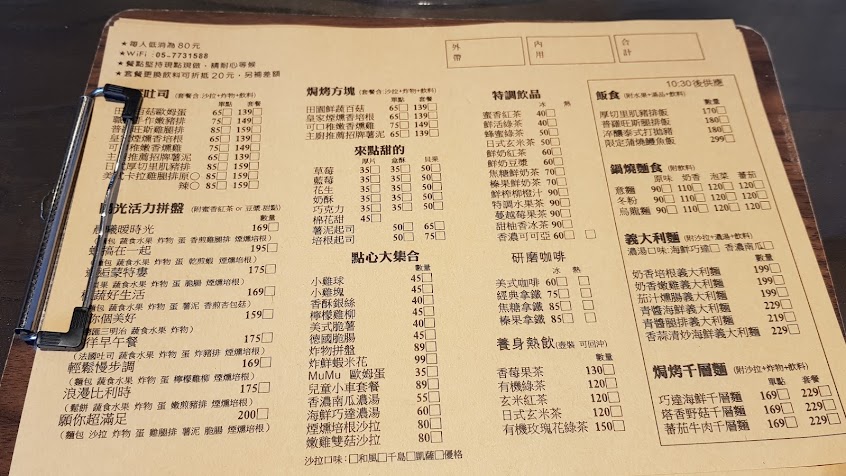 ★每人低消為80元
★WiFi:05-7731588
★餐點堅持現點現做，請耐心等候
★套餐更換飲料可折抵20元，另補差額
外帶
內用
合計
吐司 (套餐含:沙拉+炸物+飲料)
單點 套餐
百菇歐姆蛋 65 139
作嫩豬排 65 139
普羅旺斯雞腿排 85 159
煙燻香培根 65 139
可口稚嫩香燻雞 65 139
主廚推薦招牌薯泥 65 139
厚切里肌豬排 85 159
卡拉雞腿排原 85 159
辣 85 159
陽光活力拼盤 (附蜜香紅茶or豆漿.甜點)
數量
曦暖時光 169
蔬食水果 炸物 蛋 香煎雞腿排 煙燻培根)
搞在一起 195
蔬食水果 炸物 蛋 乾煎蝦 煙燻培根)
逅蒙特婁 175
蔬食水果 炸物 蛋 脆腸 煙燻培根)
蔬好生活 169
蔬食水果 炸物 蛋 薯泥 香煎杏包菇)
你個美好 159
三明治 蔬食水果 炸物)
洋早午餐 175
(法國吐司 蔬食水果 炸物 蛋 炸豬排 煙燻培根)
輕鬆慢步調 169
(麵包 蔬食水果 炸物 蛋 檸檬雞柳 煙燻培根)
浪漫比利時 175
(鬆餅 蔬食水果 炸物 蛋 嫩煎豬排 煙燻培根)
願你超滿足 200
(麵包 沙拉 炸物 蛋 雞腿排 薯泥 脆腸 煙燻培根)
焗烤方塊 (套餐含:沙拉+炸物+飲料)
單點 套餐
田園鮮蔬百菇 65 139
皇家煙燻香培根 65 139
可口稚嫩香燻雞 65 139
主廚推薦招牌薯泥 65 139
來點甜的
厚片 盒酥 貝果
草莓 35 35 50
藍莓 35 35 50
花生 35 35 50
奶酥 35 35 50
巧克力 35 35 50
棉花甜 45
薯泥起司 50 65
培根起司 50 75
點心大集合
數量
小雞球 45
小雞塊 45
香酥銀絲 40
檸檬雞柳 40
美式脆薯 40
德國脆腸 40
炸物拼盤 89
炸鮮蝦米花 99
MuMu 歐姆蛋 35
兒童小車套餐 89
香濃南瓜濃湯 55
海鮮巧達濃湯 60
煙燻培根沙拉 80
嫩雞雙筍沙拉 80
沙拉口味:和風 千島 凱薩 優格
特調飲品
冰 熱
蜜香紅茶 40
鮮活綠茶 40
蜂蜜綠茶 50
日式玄米茶 50
鮮奶紅茶 60
鮮奶豆漿 60
焦糖鮮奶茶 70
榛果鮮奶茶 70
鮮榨柳橙汁 90
特調水果茶 90
蔓越莓果茶 90
甜柚香冰茶 90
香濃可可亞 60
研磨咖啡
冰 熱
美式咖啡 60
經典拿鐵 75
焦糖拿鐵 85
榛果拿鐵 85
養身熱飲 (壺裝 可回沖)
數量
香莓果茶 130
有機綠茶 120
玄米紅茶 120
日式玄米茶 120
有機玫瑰花綠茶 150
10:30後供應
飯食 (附水果+湯品+飲料)
數量
厚切里肌豬排飯 170
普羅旺斯雞腿排飯 180
淬釀泰式打拋豬 180
限定蒲燒鰻魚飯 299
鍋燒麵食 (附飲料)
原味 奶香 泡菜 蕃茄
意麵 90 110 120 120
冬粉 90 110 120 120
烏龍麵 90 110 120 120
義大利麵 (附沙拉+濃湯+飲料)
濃湯口味:海鮮巧達 香濃南瓜
數量
奶香培根義大利麵 199
奶香嫩雞義大利麵 199
茄汁燻腸義大利麵 199
青醬海鮮義大利麵 229
青醬腿排義大利麵 219
香蒜清炒海鮮義大利麵 229
焗烤千層麵 (附沙拉+炸物+飲料)
單點 套餐
巧達海鮮千層麵 169 229
塔香野菇千層麵 169 229
蕃茄牛肉千層麵 169 229